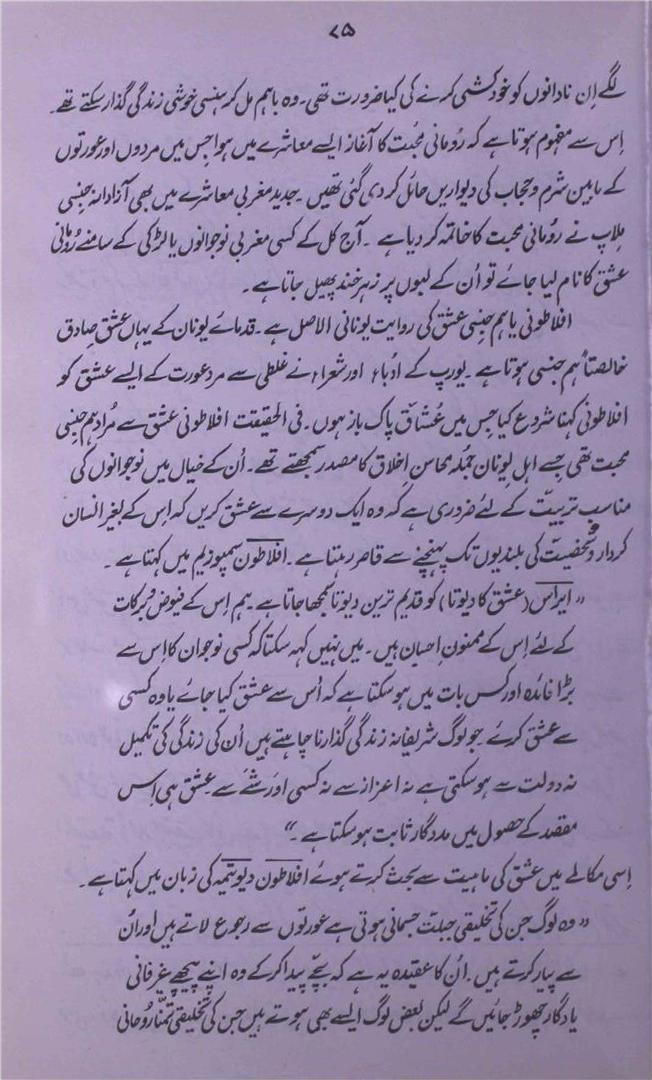 ۲۵
لگے اِن نادانوں کو خودکشی کرنے کی کیا ضرورت تھی۔ وہ باہم مل کر ہنسی خوشی زندگی گذار سکتے تھے۔
اِس سے مفہوم ہوتا ہے کہ رُومانی محبّت کا آغاز ایسے معاشرے میں ہوا جس میں مردوں اور عورتوں
کے مابین شرم و حجاب کی دیواریں حائل کر دی گئی تھیں۔ جدید مغربی معاشرے میں بھی آزادانہ جنسی
ملاپ نے رُومانی محبت کا خاتمہ کر دیا ہے۔ آج کل کے کسی مغربی نوجوانوں یا لڑکی کے سامنے رُومانی
عشق کا نام لیا جائے تو اُن کے لبوں پر زہر خند پھیل جاتا ہے۔
افلاطونی یا ہم جنسی عشق کی روایت یونانی الاصل ہے۔ قدمائے یونان کے یہاں عشقِ صادق
خالصتاً ہم جنسی ہوتا ہے۔ یورپ کے اُدباء اور شعراء نے غلطی سے مرد عورت کے ایسے عشق کو
افلاطونی کہنا شروع کیا جس میں عُشّاق پاک باز ہوں۔ فی الحقیقت افلاطونی عشق سے مُراد ہم جنسی
محبت تھی جسے اہلِ یونان جُملہ محاسنِ اخلاق کا مصدر سمجھتے تھے۔ اُن کے خیال میں نوجوانوں کی
مناسب تربیّت کے لئے ضروری ہے کہ وہ ایک دوسرے سے عشق کریں کہ اس کے بغیر انسان
کردار و شخصیّت کی بلندیوں تک پہنچنے سے قاصر رہتا ہے۔ افلاطون سمپوزیم میں کہتا ہے۔
”ایراس (عشق کا دیوتا) کو قدیم ترین دیوتا سمجھا جاتا ہے۔ ہم اِس کے فیوض و برکات
کے لئے اِس کے ممنونِ احسان ہیں۔ میں نہیں کہہ سکتا کہ کسی نوجوان کا اس سے
بڑا فائدہ اور کس بات میں ہو سکتا ہے کہ اُس سے عشق کیا جائے یا وہ کسی
سے عشق کرے۔ جو لوگ شریفانہ زندگی گذارنا چاہتے ہیں اُن کی زندگی کی تکمیل
نہ دولت سے ہو سکتی ہے نہ اعزاز سے نہ کسی اور شئے سے عشق ہی اِس
مقصد کے حصول میں مددگار ثابت ہو سکتا ہے۔“
اِسی مکالمے میں عشق کی ماہیت سے بحث کرتے ہوئے افلاطون دیوتیمہ کی زبان میں کہتا ہے۔
”وہ لوگ جن کی تخلیقی جبلّت جسمانی ہوتی ہے عورتوں سے رجوع لاتے ہیں اور اُن
سے پیار کرتے ہیں۔ اُن کا عقیدہ یہ ہے کہ بچّے پیدا کر کے وہ اپنے پیچھے غیرفانی
یادگار چھوڑ جائیں گے لیکن بعض لوگ ایسے بھی ہوتے ہیں جن کی تخلیقی تمنّا رُوحانی